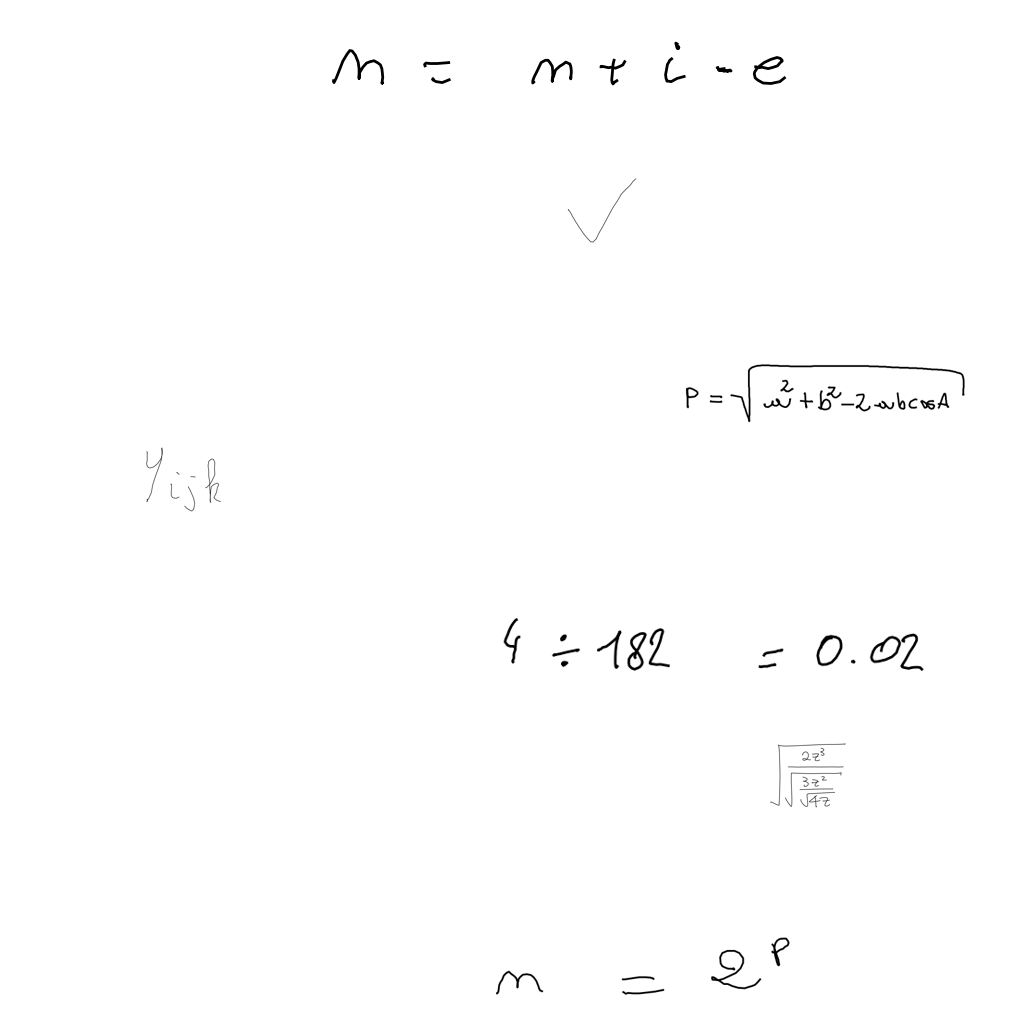 n = n + i - e
√
P = √(a² + b² - 2abcosA)
y_ijk
4 ÷ 182 = 0.02
√(2z³/√(3z²/√(4z)))
n = 2^p